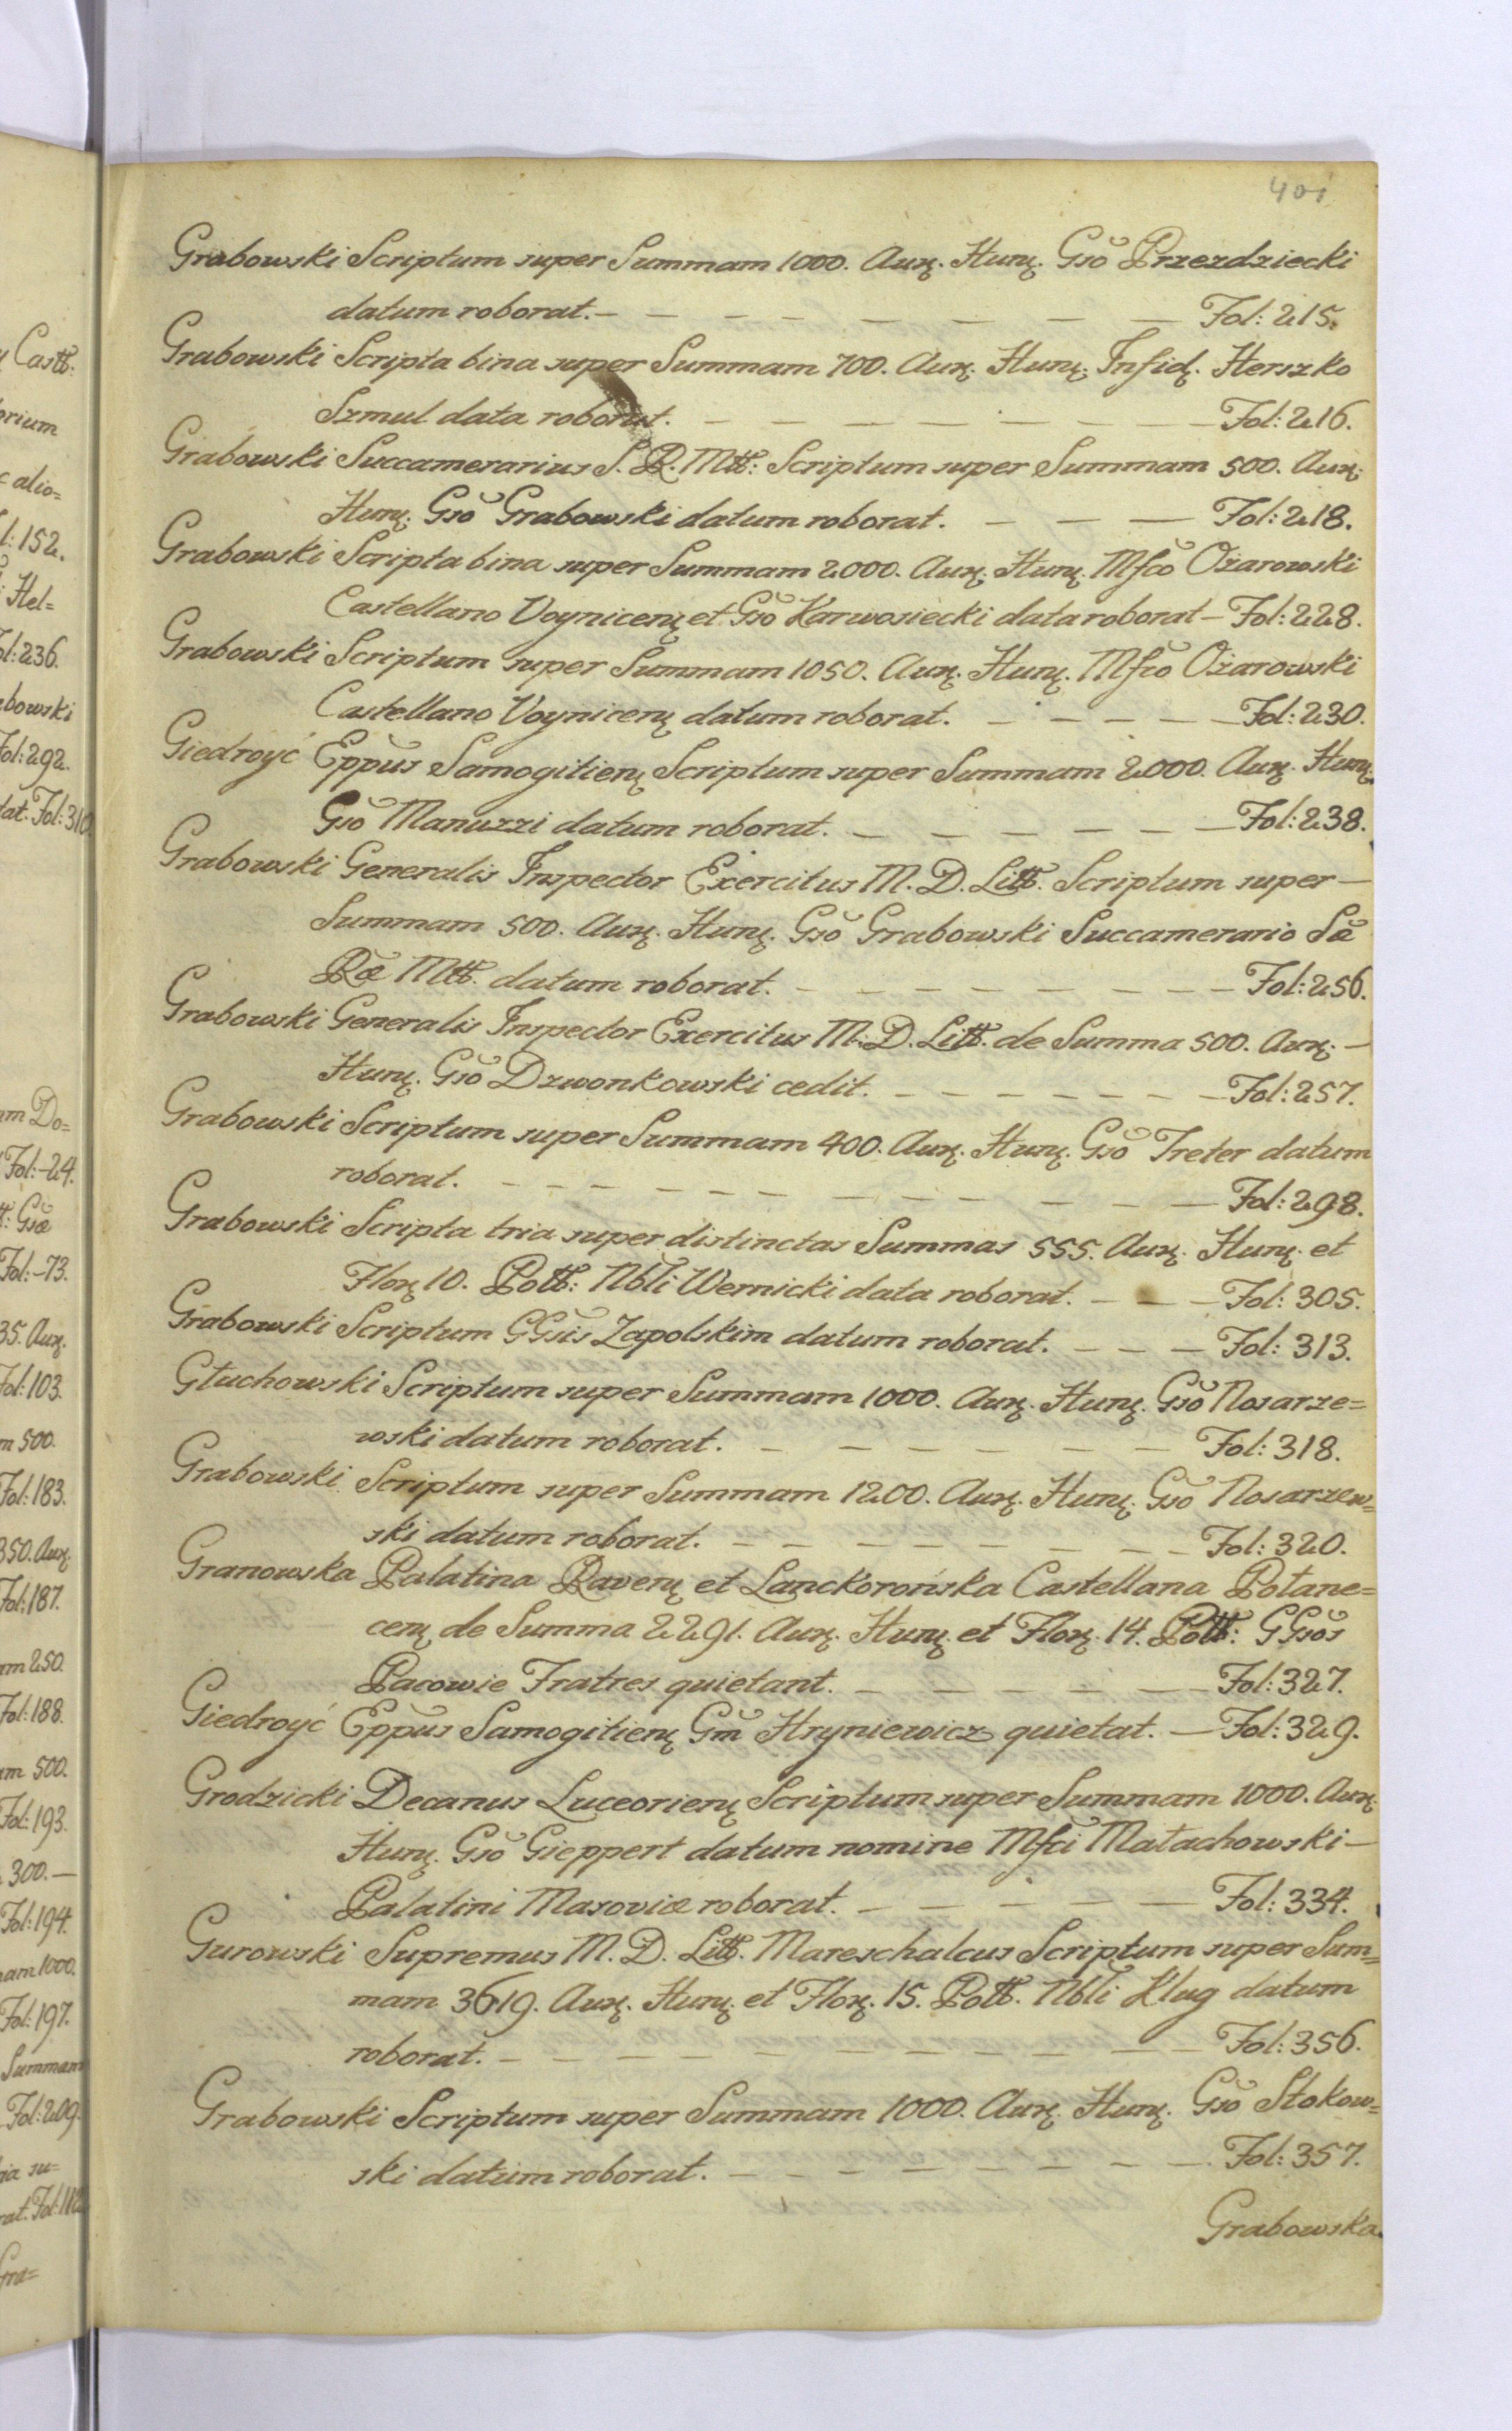 401
Grabowski Scriptum super Summam 1000. Aurͅ. Hunͅ. Gsŏ Przezdziecki
datum roborat. — — — — — — — — Fol: 215.
Grabowski Scripta bina super Summam 700. Aurͅ. Hunͅ. Infidͅ. Herszko
Szmul data roborat. — — — — — — — Fol: 216.
Grabowski Succamerarius S. R. Mtt: Scriptum super Summam 500. Aurͅ.
Hunͅ. Gsŏ Grabowski datum roborat. — — — Fol: 218.
Grabowski Scripta bina super Summam 2000. Aurͅ. Hunͅ. Mfcŏ Ożarowski
Castellano Voynicenͅ et Gsŏ Karwosiecki data roborat — Fol: 228.
Grabowski Scriptum super Summam 1050. Aurͅ. Hunͅ. Mfcŏ Ożarowski
Castellano Voynicenͅ datum roborat. — — — — — Fol: 230.
Giedroyć Eppŭs Samogitienͅ Scriptum super Summam 2000. Aurͅ. Hunͅ.
Gsŏ Manuzzi datum roborat. — — — — — — Fol: 238.
Grabowski Generalis Inspector Exercitus M. D. Litt. Scriptum super —
Summam 500. Aurͅ. Hunͅ. Gsŏ Grabowski Succamerario Sæ̆
Ræ Mtt. datum roborat. — — — — — — — Fol: 256.
Grabowski Generalis Inspector Exercitus M. D. Litt. de Summa 500. Aurͅ. —
Hunͅ. Gsŏ Dzwonkowski cedit. — — — — — — Fol: 257.
Grabowski Scriptum super Summam 400. Aurͅ. Hunͅ. Gsŏ Treter datum
roborat. — — — — — — — — — Fol: 298.
Grabowski Scripta tria super distinctas Summas 555. Aurͅ. Hunͅ. et
Florͅ 10. Poltt: Nblĭ Wernicki data roborat. — — — Fol: 305.
Grabowski Scriptum GGsĭs Zapolskim datum roborat. — — — Fol: 313.
Głuchowski Scriptum super Summam 1000. Aurͅ. Hunͅ. Gsŏ Nosarze=
wski datum roborat. — — — — — — Fol: 318.
Grabowski Scriptum super Summam 1200. Aurͅ. Hunͅ. Gsŏ Nosarzew=
ski datum roborat. — — — — — — — Fol: 320.
Granowska Palatina Ravenͅ et Lanckorońska Castellana Połane=
cenͅ de Summa 2291. Aurͅ. Hunͅ. et Florͅ. 14. Poltt: GGsŏs
Pacowie Fratres quietant. — — — — — Fol: 327.
Giedroyć Eppŭs Samogitienͅ Gm̆ Hryniewicz quietat. — Fol: 329.
Grodzicki Decanus Luceorienͅ Scriptum super Summam 1000. Aurͅ.
Hunͅ. Gsŏ Gieppert datum nomine Mfcĭ Małachowski —
Palatini Masoviæ roborat. — — — — — Fol: 334.
Gurowski Supremus M. D. Litt. Mareschalcus Scriptum super Sum=
mam 3619. Aurͅ. Hunͅ. et Florͅ. 15. Poltt. Nblĭ Klug datum
roborat. — — — — — — — — — Fol: 356.
Grabowski Scriptum super Summam 1000. Aurͅ. Hunͅ. Gsŏ Stokow=
ski datum roborat. — — — — — — — Fol: 357.
Grabowska